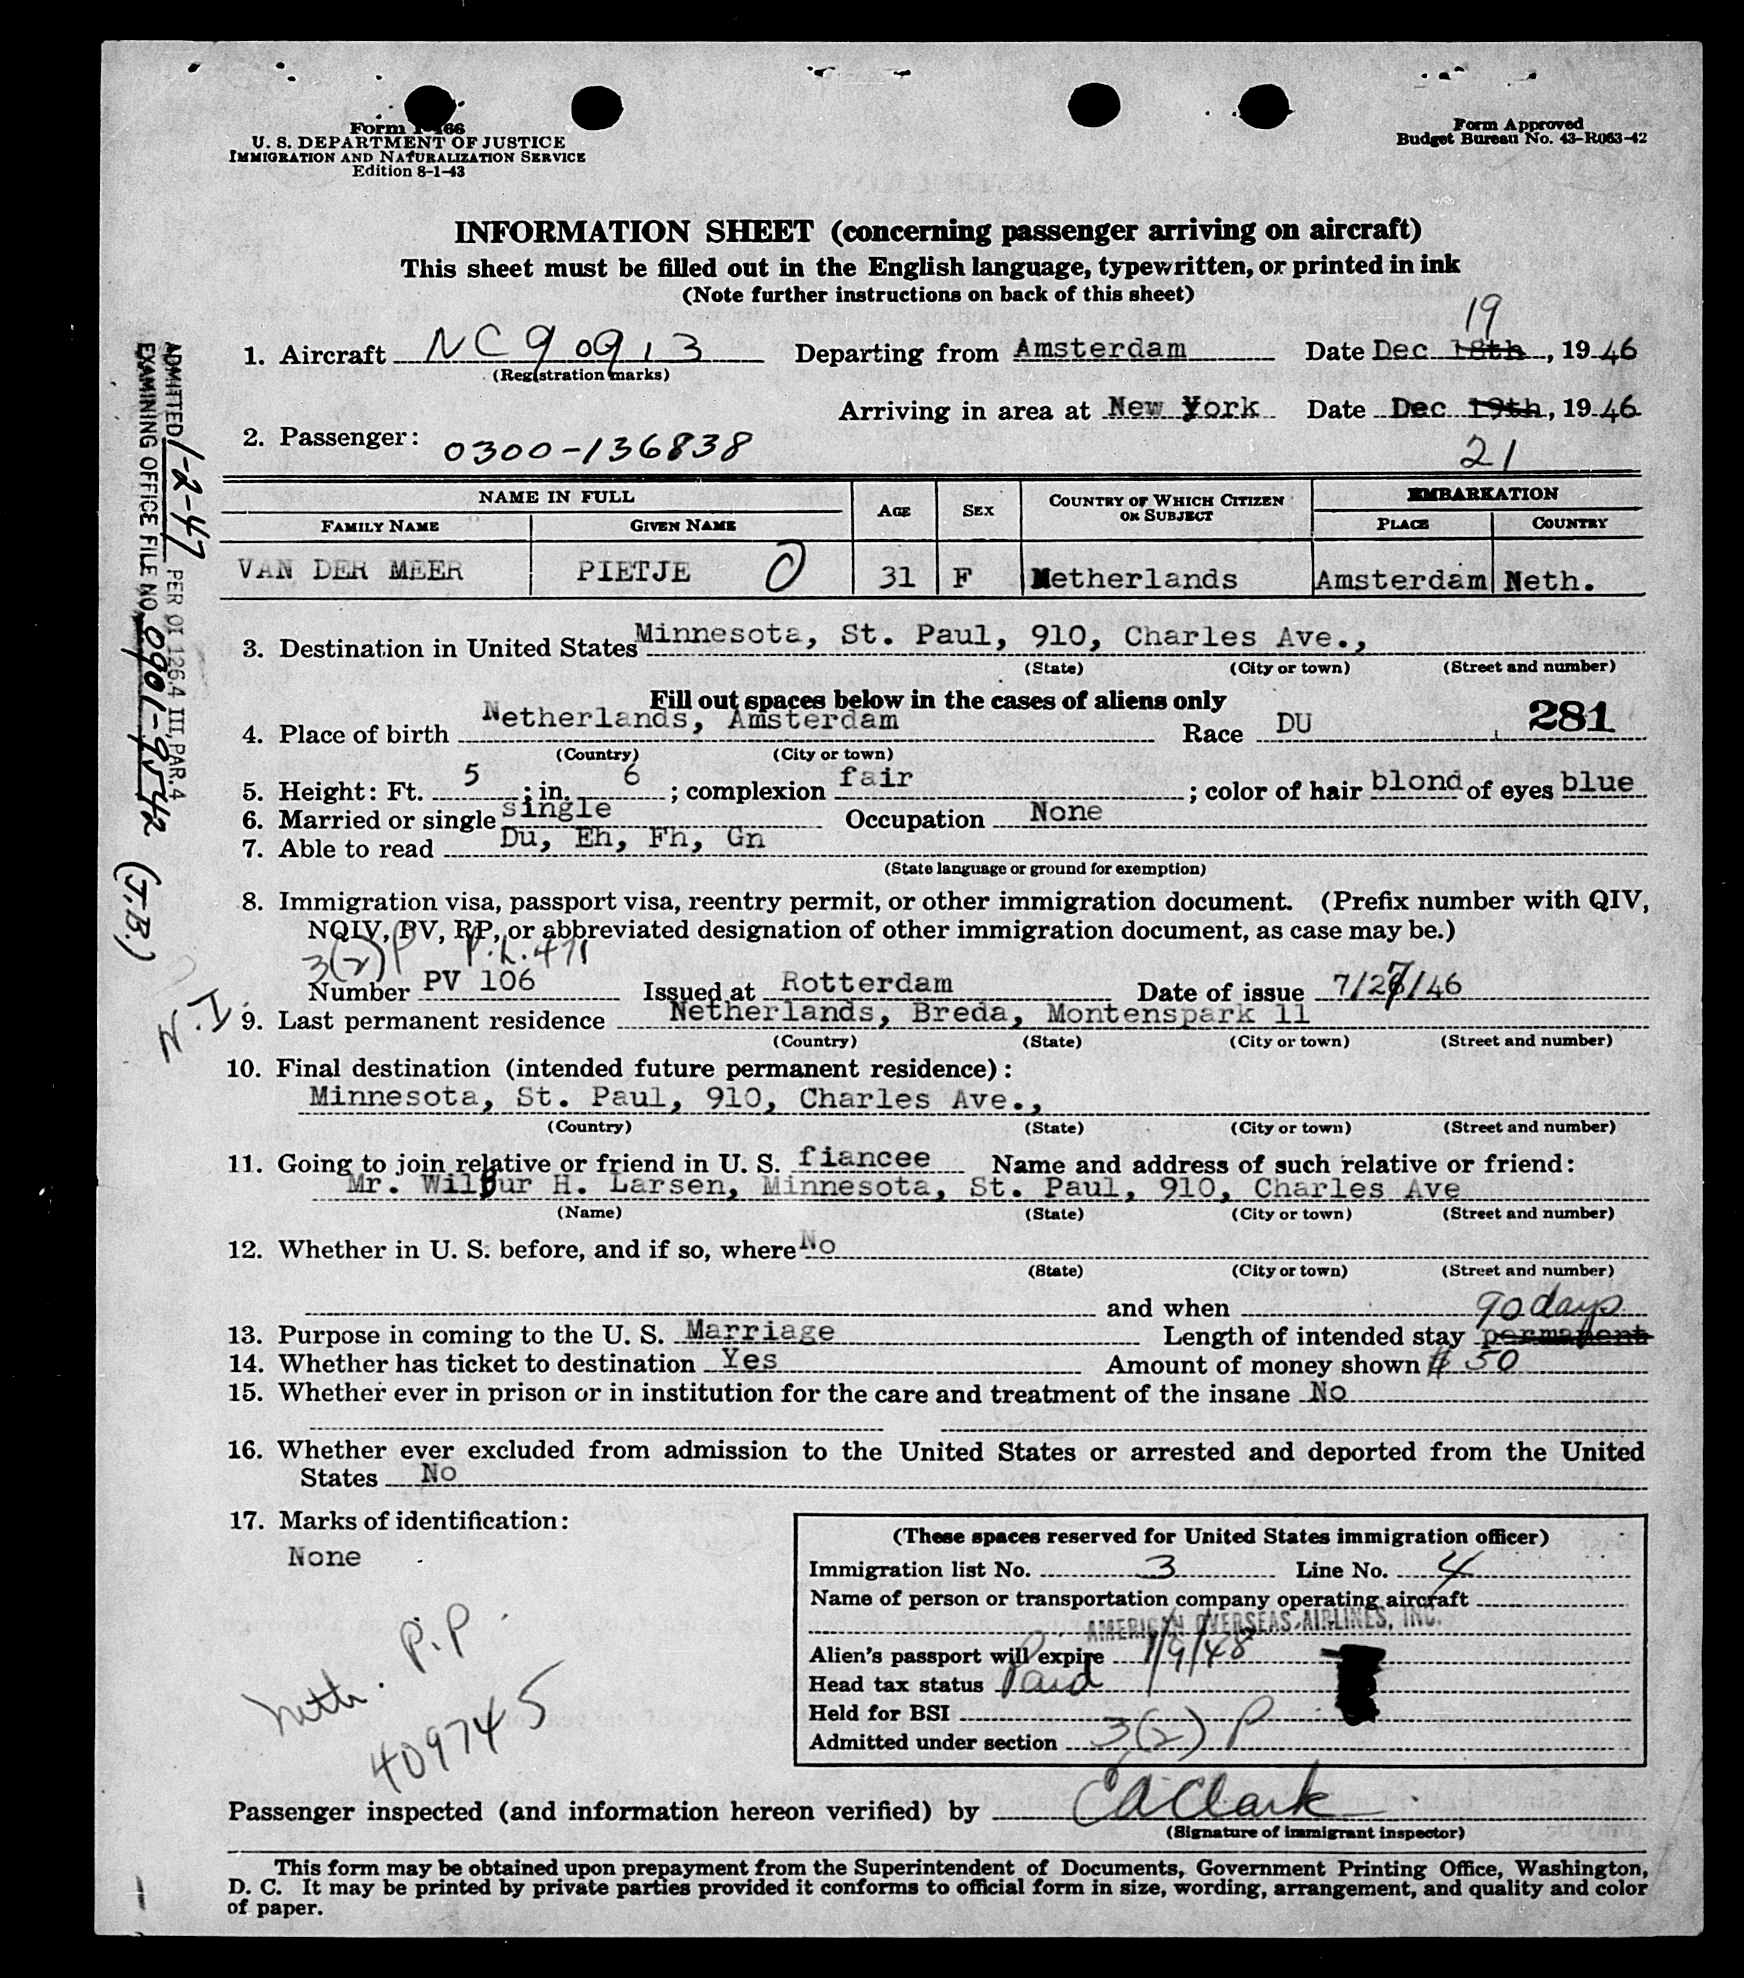 Form I-466
U. S. DEPARTMENT OF JUSTICE
IMMIGRATION AND NATURALIZATION SERVICE
Edition 8-1-43
Form Approved
Budget Bureau No. 43-R063-42
INFORMATION SHEET (concerning passenger arriving on aircraft)
This sheet must be filled out in the English language, typewritten, or printed in ink
(Note further instructions on back of this sheet)
19
1. Aircraft NC 90913 Departing from Amsterdam Date Dec 18th, 1946
(Registration marks)
Arriving in area at New York Date Dec 19th, 1946
21
2. Passenger: 0300-136838
NAME IN FULL AGE SEX COUNTRY OF WHICH CITIZEN OR SUBJECT EMBARKATION
FAMILY NAME GIVEN NAME PLACE COUNTRY
VAN DER MEER PIETJE 0 31 F Netherlands Amsterdam Neth.
3. Destination in United States Minnesota, St. Paul, 910, Charles Ave.,
(State) (City or town) (Street and number)
Fill out spaces below in the cases of aliens only
4. Place of birth Netherlands, Amsterdam Race DU 281
(Country) (City or town)
5. Height: Ft. 5 ; in. 6 ; complexion fair ; color of hair blond of eyes blue
6. Married or single single Occupation None
7. Able to read Du, Eh, Fh, Gn
(State language or ground for exemption)
8. Immigration visa, passport visa, reentry permit, or other immigration document. (Prefix number with QIV,
NQIV, PV, RP, or abbreviated designation of other immigration document, as case may be.)
3(2)P P.L. 471
Number PV 106 Issued at Rotterdam Date of issue 7/27/46
9. Last permanent residence Netherlands, Breda, Montenspark 11
(Country) (State) (City or town) (Street and number)
10. Final destination (intended future permanent residence):
Minnesota, St. Paul, 910, Charles Ave.,
(Country) (State) (City or town) (Street and number)
11. Going to join relative or friend in U. S. fiancee Name and address of such relative or friend:
Mr. Wilbur H. Larsen, Minnesota, St. Paul, 910, Charles Ave
(Name) (State) (City or town) (Street and number)
12. Whether in U. S. before, and if so, where No
(State) (City or town) (Street and number)
and when
90 days
13. Purpose in coming to the U. S. Marriage Length of intended stay permanent
14. Whether has ticket to destination Yes Amount of money shown $ 50
15. Whether ever in prison or in institution for the care and treatment of the insane No
16. Whether ever excluded from admission to the United States or arrested and deported from the United
States No
17. Marks of identification:
None
Neth. P.P.
409745
(These spaces reserved for United States immigration officer)
Immigration list No. 3 Line No. 4
Name of person or transportation company operating aircraft
AMERICAN OVERSEAS AIRLINES, INC.
Alien's passport will expire 1/9/48
Head tax status Paid
Held for BSI
Admitted under section 3(2) P
Passenger inspected (and information hereon verified) by CA Clark
(Signature of immigrant inspector)
This form may be obtained upon prepayment from the Superintendent of Documents, Government Printing Office, Washington,
D. C. It may be printed by private parties provided it conforms to official form in size, wording, arrangement, and quality and color
of paper.
ADMITTED 1-2-47 PER OI 126.4 III, PAR. 4
EXAMINING OFFICE FILE NO. 0901-9542 (J.B.)
N.I.